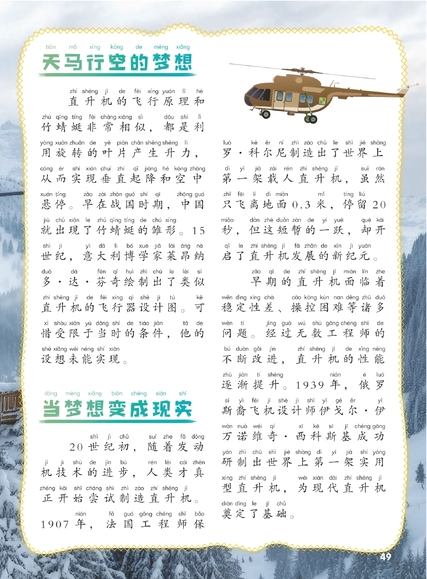 天马行空的梦想
直升机的飞行原理和
竹蜻蜓非常相似，都是利
用旋转的叶片产生升力，
从而实现垂直起降和空中
悬停。早在战国时期，中国
就出现了竹蜻蜓的雏形。15
世纪，意大利博学家莱昂纳
多·达·芬奇绘制出了类似
直升机的飞行器设计图。可
惜受限于当时的条件，他的
设想未能实现。
当梦想变成现实
20世纪初，随着发动
机技术的进步，人类才真
正开始尝试制造直升机。
1907年，法国工程师保
罗·科尔尼制造出了世界上
第一架载人直升机，虽然
只飞离地面0.3米，停留20
秒，但这短暂的一跃，却开
启了直升机发展的新纪元。
早期的直升机面临着
稳定性差、操控困难等诸多
问题。经过无数工程师的
不断改进，直升机的性能
逐渐提升。1939年，俄罗
斯裔飞机设计师伊戈尔·伊
万诺维奇·西科斯基成功
研制出世界上第一架实用
型直升机，为现代直升机
奠定了基础。
49